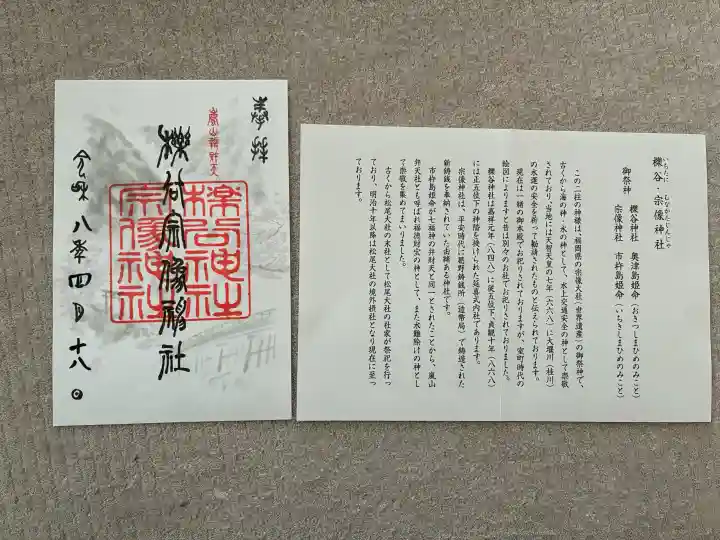 奉拝
嵐山弁財天
櫟谷宗像神社
櫟谷神社
宗像神社
令和八年四月十八
いちたに むなかたじんじゃ
櫟谷・宗像神社
御祭神 櫟谷神社 奥津島姫命(おきつしまひめのみこと)
宗像神社 市杵島姫命(いちきしまひめのみこと)
この二柱の神様は、福岡県の宗像大社(世界遺産)の御祭神で、
古くから海の神・水の神として、水上交通安全の神として崇敬
されており、当地には天智天皇の七年(六六八)に大堰川(桂川)
の水運の安全を祈って勧請されたものと伝えられております。
現在は一緒の御本殿でお祀りされておりますが、室町時代の
絵図によりますと昔は別々のお社でお祀りされておりました。
櫟谷神社は嘉祥元年(八四八)に従五位下、貞観十年(八六八)
には正五位下の神階を授けられた延喜式内社であります。
宗像神社は、平安時代に葛野鋳銭所(造幣局)で鋳造された
新鋳銭を奉納されていた由緒ある神社です。
市杵島姫命が七福神の弁財天と同一とされたことから、嵐山
弁天社とも呼ばれ福徳財宝の神として、また水難除けの神とし
て崇敬を集めてまいりました。
古くから松尾大社の末社として松尾大社の社家が祭祀を行っ
ており、明治十年以降は松尾大社の境外摂社となり現在に至っ
ております。